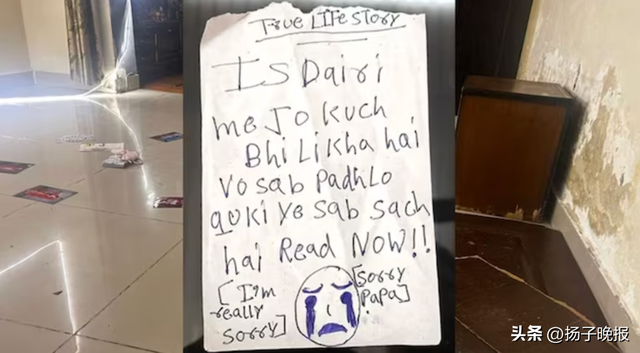 True Life Story
Is Dairi
me Jo Kuch
Bhi Likha hai
Vo sab Padhlo
quki ye sab sach
hai Read NOW!!
[I'm
really
sorry]
[Sorry
Papa]
头条 @扬子晚报